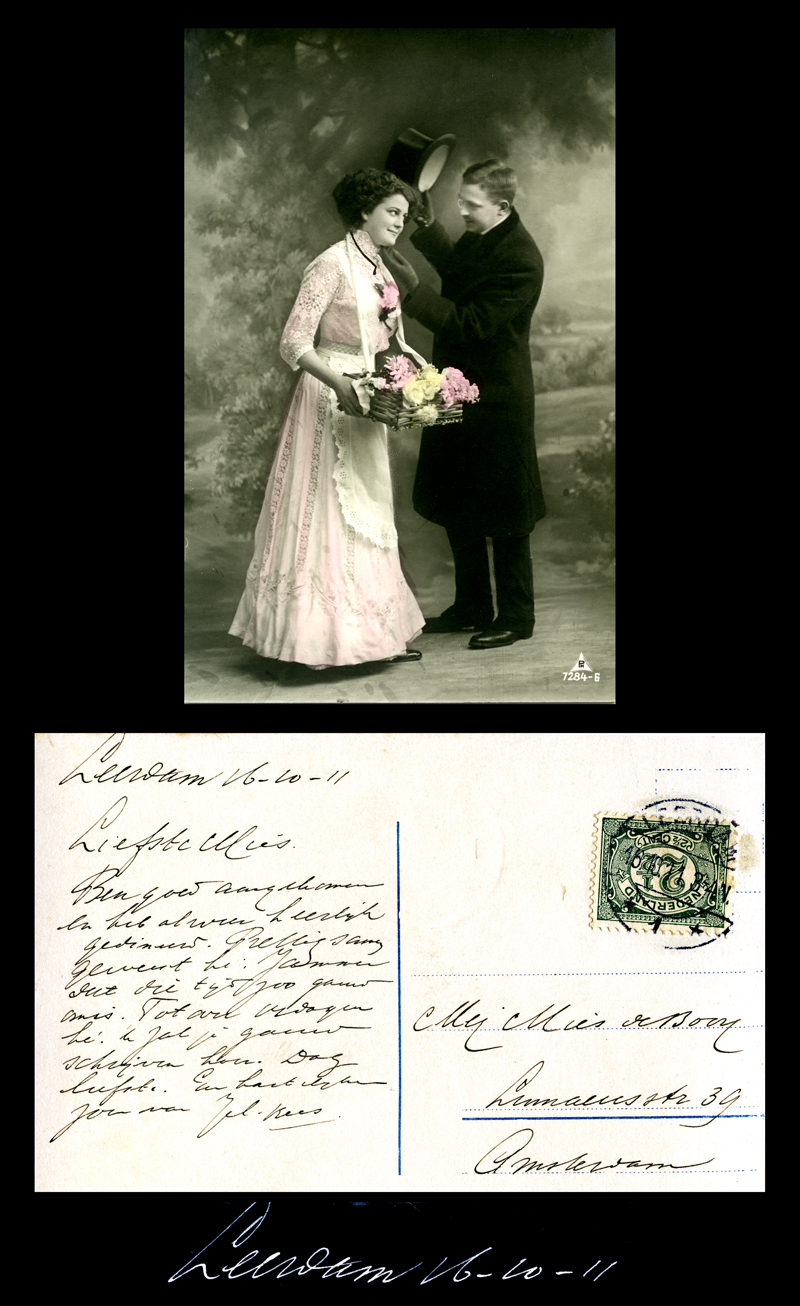 7284-6
Leerdam 16-10-11
Liefste Mies.
Ben goed aangekomen
en heb alweer heerlijk
gedineerd. Prettig samen
geweest hè. Jammer
dat die tijd zoo gauw
om is. Tot over dagen
hè. Ik zal je gauw
schrijven hoor. Dag
liefste. En hart
jou van Kees.
NEDERLAND
2½ CENT
Mej Mies de Booy
Linnaeusstr 39
Amsterdam
Leerdam 16-10-11